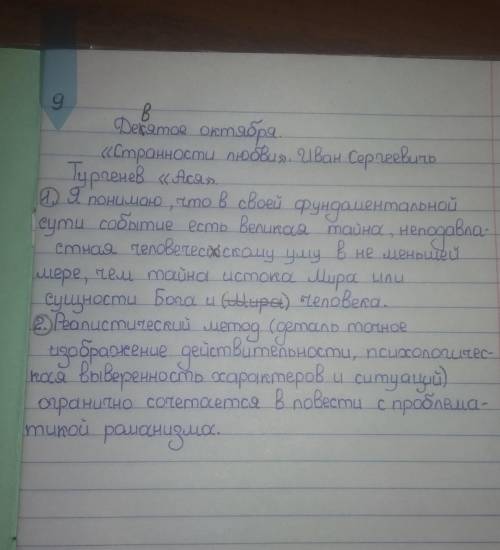 9
Девятое октября.
«Странности любви». Иван Сергеевичь
Тургенев «Ася».
1. Я понимаю, что в своей фундаментальной
сути событие есть великая тайна, неподвла-
стная человеческому уму в не меньшей
мере, чем тайна истока Мира или
сущности Бога и (Мира) человека.
2. Реалистический метод (деталь точное
изображение действительности, психологичес-
кая выверенность характеров и ситуаций)
огранично сочетается в повести с проблема-
тикой романизма.